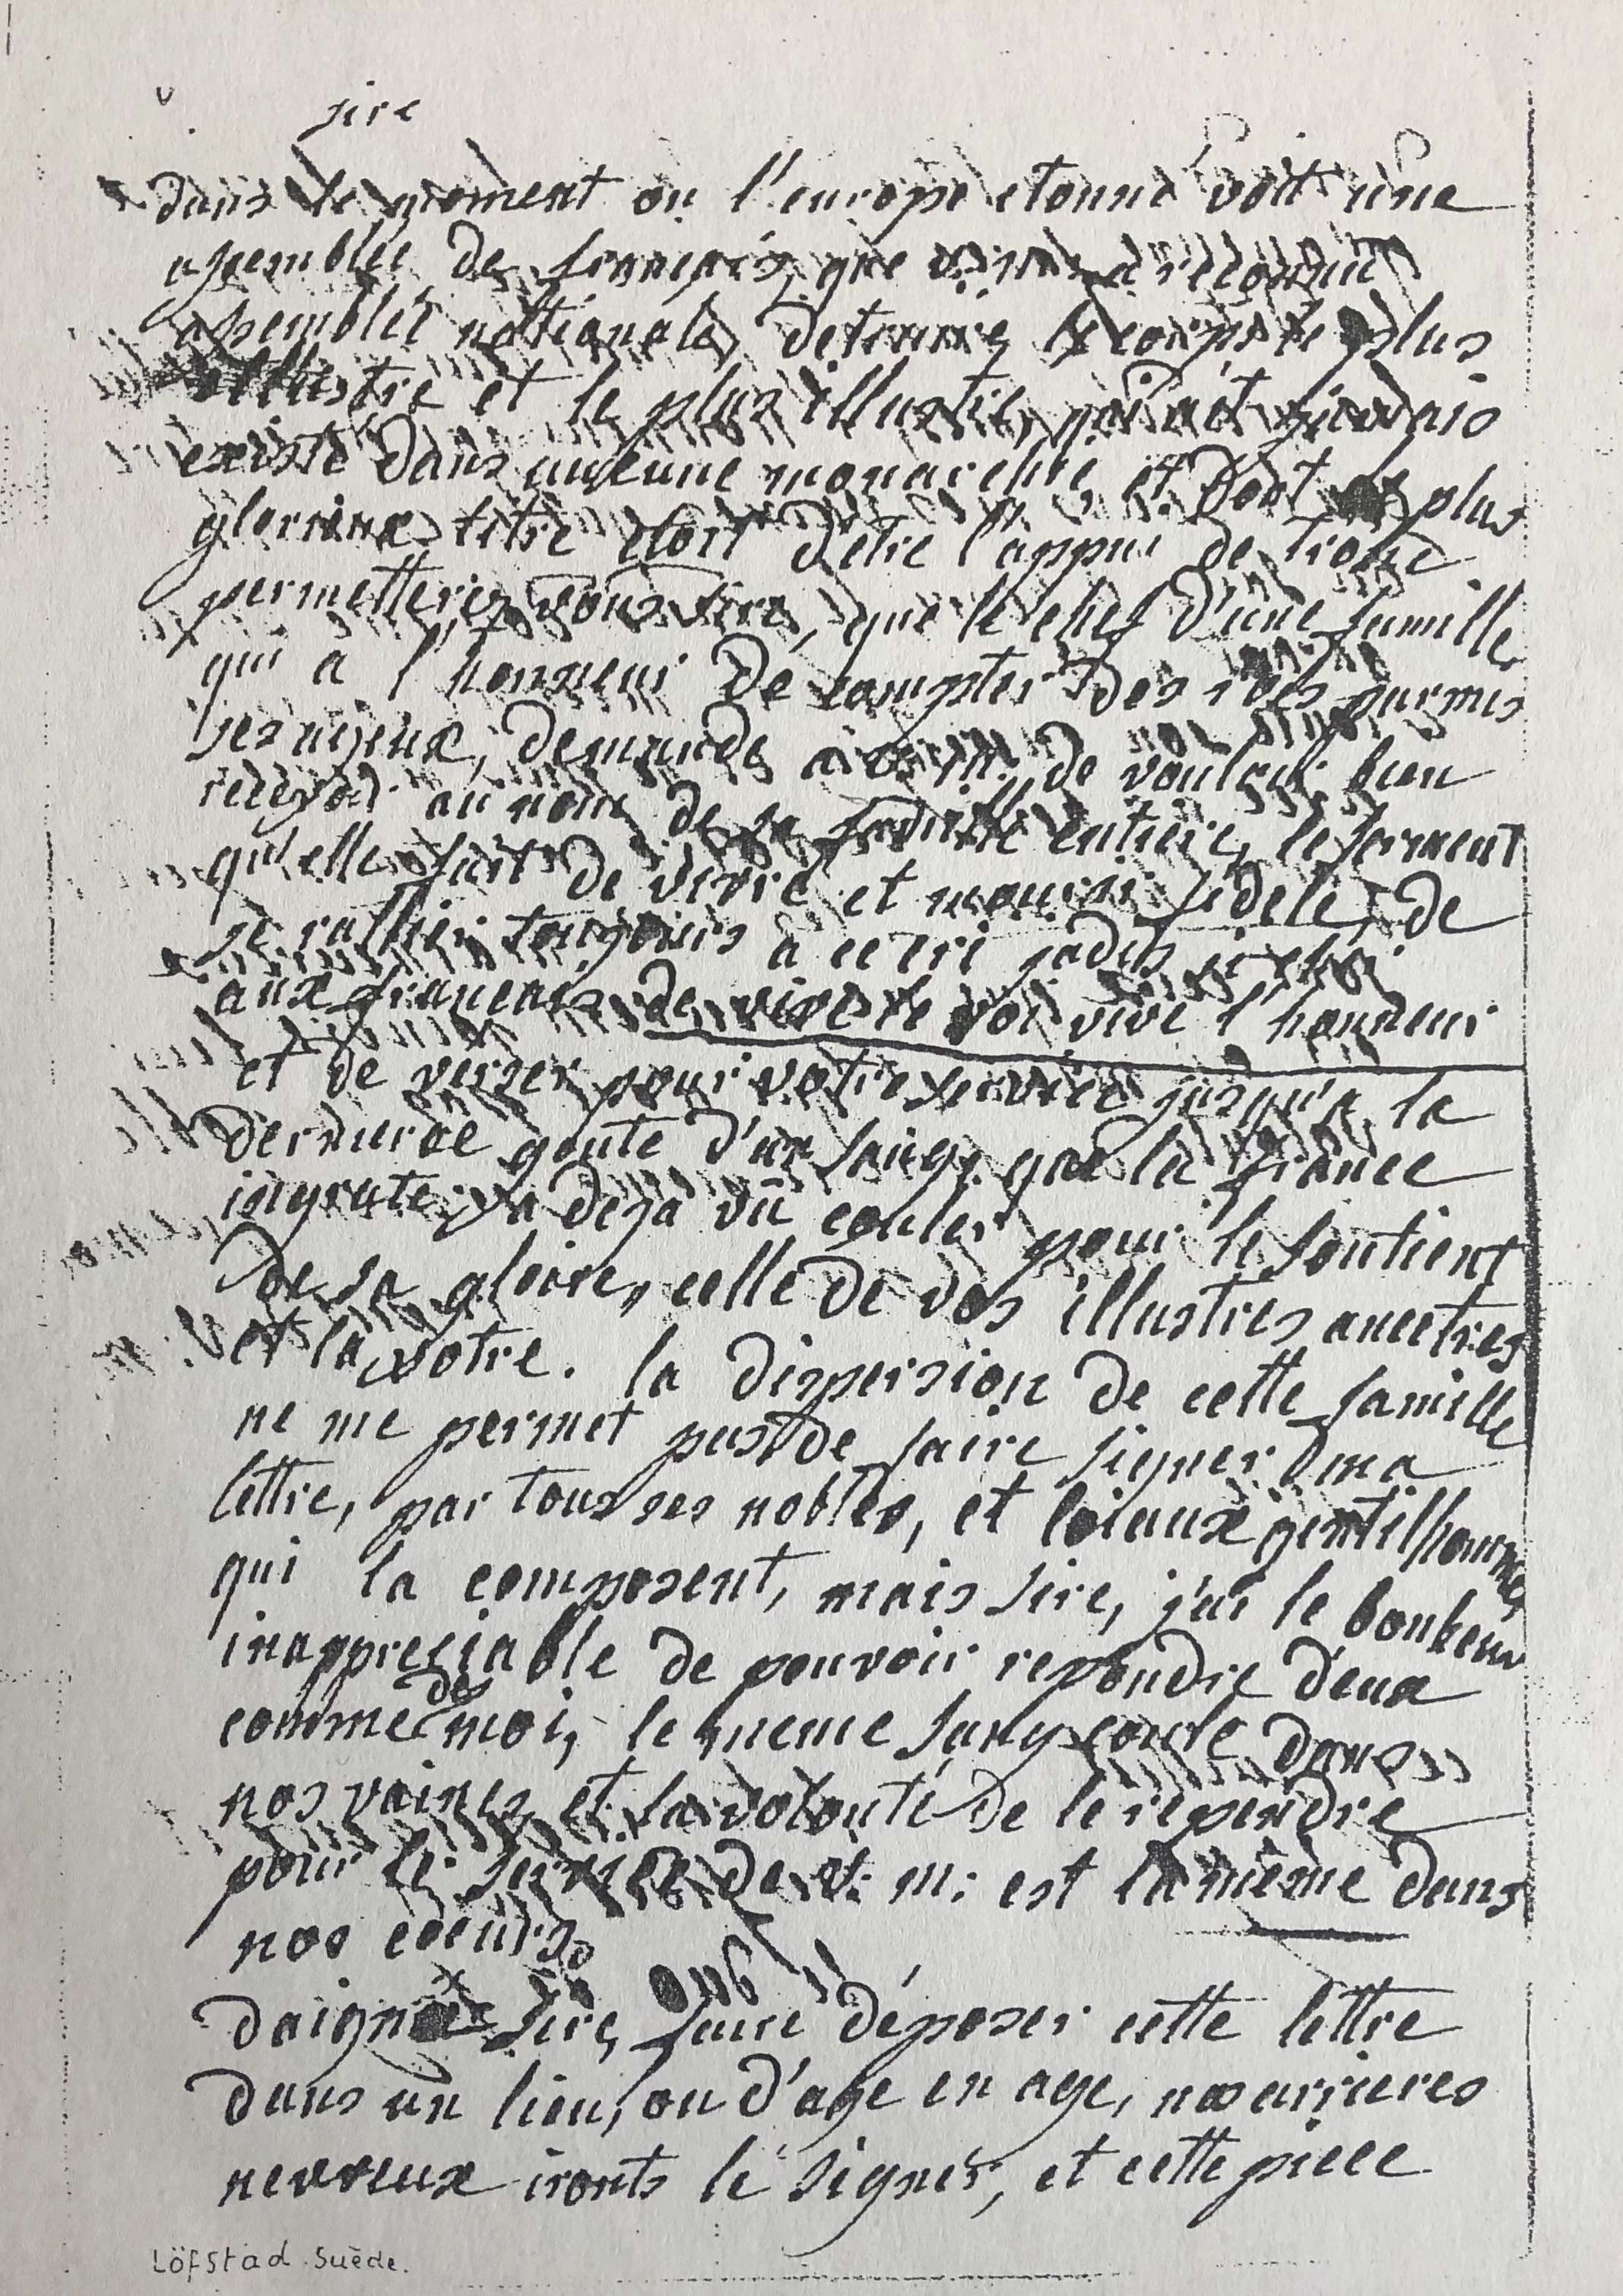 sire
dans le moment ou l'europe etonné voit une
assemblée de français, que v: m: a reconnue
assemblée nattionale, detruire le corps le plus
et le plus illustre, qui aÿt jamais
existé dans aucune monarchie, et dont le plus
glorieux titre etoit d'etre l'appui de trone
permetterez vous sire, que le chef d'une famille
qui a l'honneur de compter des rois parmis
ses ayeux, demande a v: m: de vouloir bien
recevoir au nom de sa famille entiere, le serment
qu'elle fait de vivre et mourir fidele, de
se rallier toujours a ce cri jadis si cher
aux francais de vive le roi vive l'honneur
et de verser pour votre service jusqu'a la
derniere goute d'un sang, que la france
ingrate, a deja vû couler pour le soutient
de sa gloire, celle de vos illustres ancetres
et la votre. la dispersion de cette famille
ne me permet pas de faire signer ma
lettre, par tous ses nobles, et loiaux gentilhommes
qui la composent, mais sire, j'ai le bonheur
inappreciable de pouvoir repondre d'eux
comme de moi, le meme sang coule dans
nos vaines, et la volonté de le rependre
pour le service de v: m: est la même dans
nos coeurs.
daignez sire, faire déposer cette lettre
dans un lieu, ou d'age en age, nos arrieres
nevveux ironts le signer, et cette piece
Löfstad. Suède.